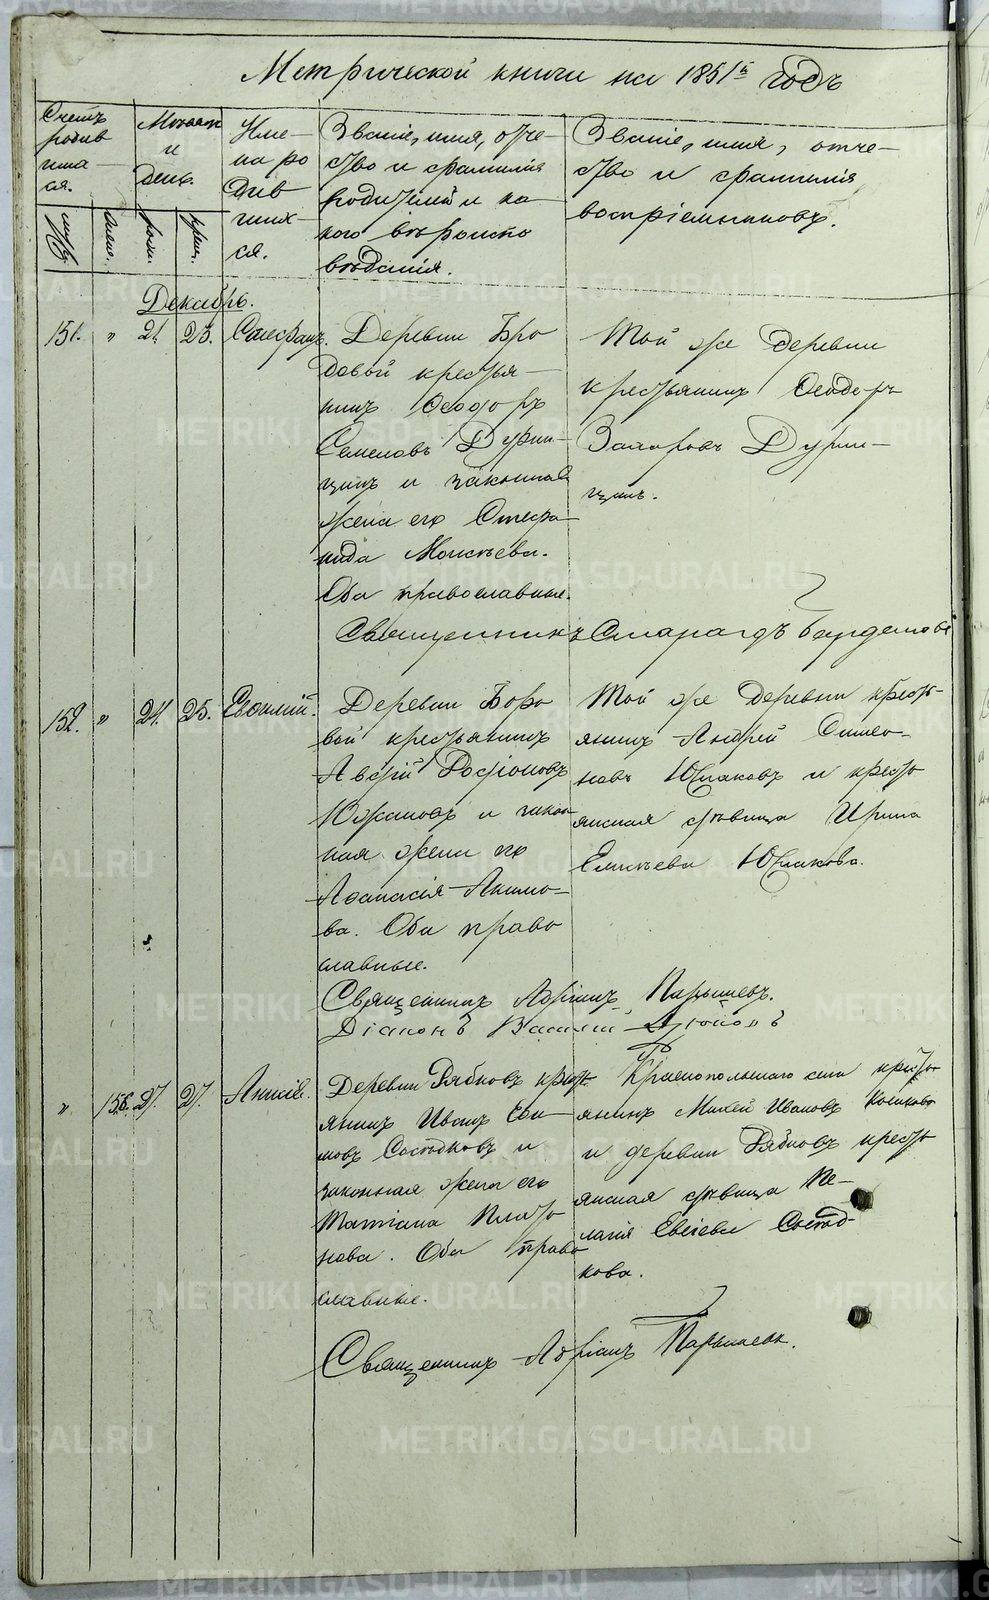 Метрической книги на 1851й годъ
Счетъ
родив
шиха-
ся.
Мѣсяцъ
и
день.
Име-
на ро
див
ших-
ся.
Званіе, имя, отче-
ство и фамилія
родителей и ка-
кого вѣроиспо
вѣданія.
Званіе, имя, отче-
ство и фамилія
воспріемниковъ.
муж.
жен.
рожд.
крещ.
Декабрь.
151. " 21. 23. Стефанъ.
Деревни Бро
довой крестья-
нинъ Ѳеодоръ
Семеновъ Дурни-
цинъ и законная
жена его Стефа-
нида Моисѣева.
Оба православные.
Той же деревни
крестьянинъ Ѳеодоръ
Захаровъ Дурни-
цинъ.
Священникъ Смарагдъ
152. " 24. 25. Евѳимій.
Деревни Боро
вой крестьянинъ
Авдій Родіоновъ
Южаковъ и закон
ная жена его
Аѳанасія Акимо-
ва. Оба право
славные.
Той же деревни кресть-
янинъ Андрей Симео-
новъ Южаковъ и кресть
янская дѣвица Ирина
Елисѣева Южакова.
Священникъ Адріанъ Парышевъ.
Діаконъ Василій
" 156. 27. 27. Анисія.
Деревни Рябковъ кресть
янинъ Иванъ Еви
мовъ Сосѣдковъ и
законная жена его
Татіана Плато
нова. Оба право
славные.
Краснопольскаго села кресть
янинъ Михей Ивановъ
и деревни Рябковъ кресть
янская дѣвица Пе-
лагія Евсіева Сосѣд-
кова.
Священникъ Адріанъ Парышевъ.
METRIKI.GASO-URAL.RU